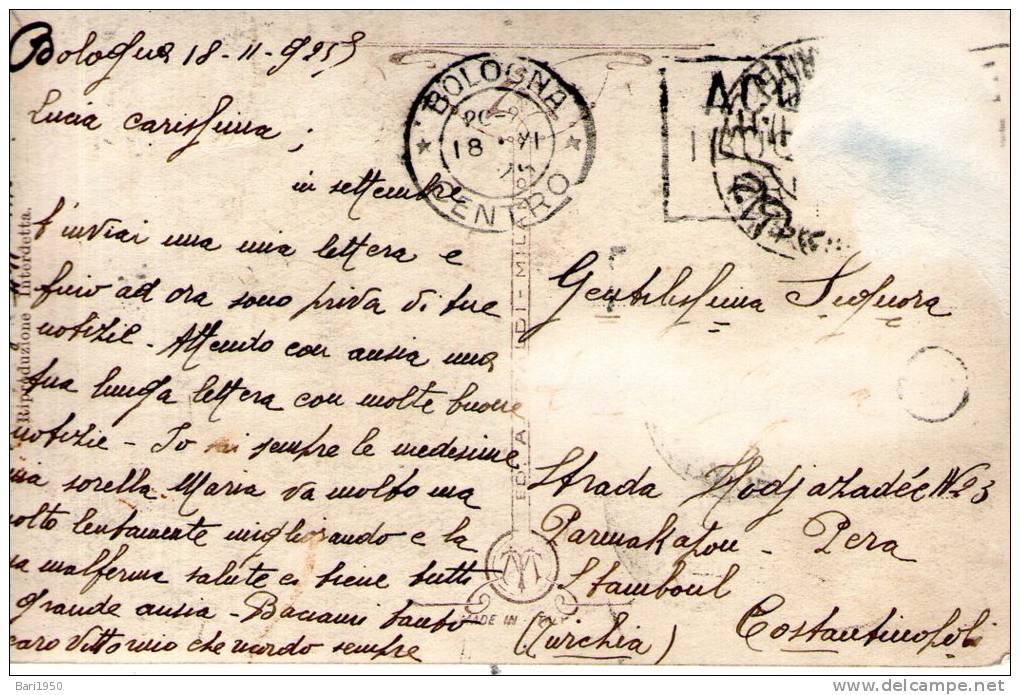 Bologna 18-11-925
Lucia carissima,
in settembre
t'inviai una mia lettera e
fino ad ora sono priva di tue
notizie. Attendo con ansia una
tua lunga lettera con molte buone
notizie - Io sempre le medesime
mia sorella Maria va molto ma
molto lentamente migliorando e la
sua malferma salute ci tiene tutti
grande ansia - Baciami tanto
caro Vittorio che ricordo sempre
Riproduzione Interdetta.
BOLOGNA
18 XI
CENTRO
MADE IN ITALY
Gentilissima Signora
Strada Hodjazadé No 23
Parmakapou - Pera
Stamboul
(Turchia) Costantinopoli
Bari1950
delcampe.net